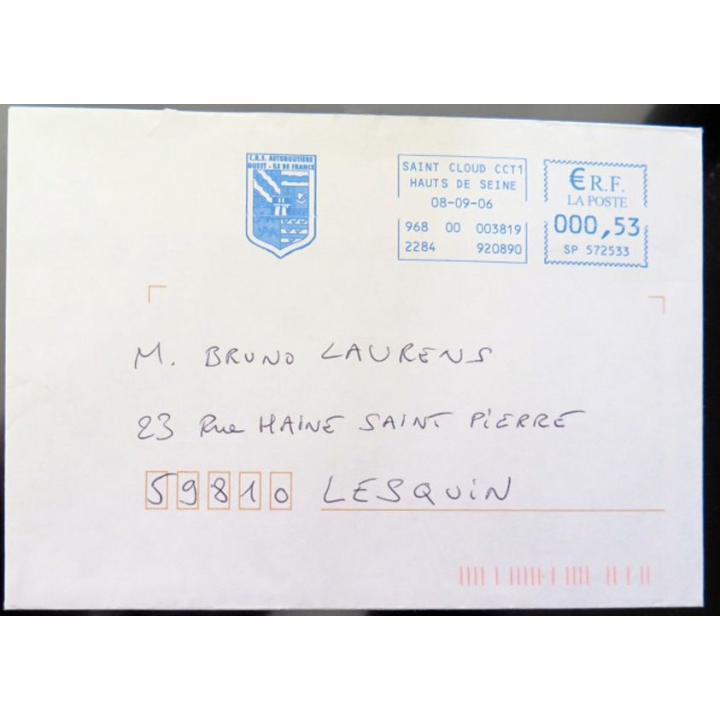 C.R.S. AUTOROUTIÈRE
OUEST - ILE DE FRANCE
SAINT CLOUD CCT1
HAUTS DE SEINE
08-09-06
968 00 003819
2284 920890
€ R.F.
LA POSTE
000,53
SP 572533
M. BRUNO LAURENS
23 Rue HAINE SAINT PIERRE
59810 LESQUIN